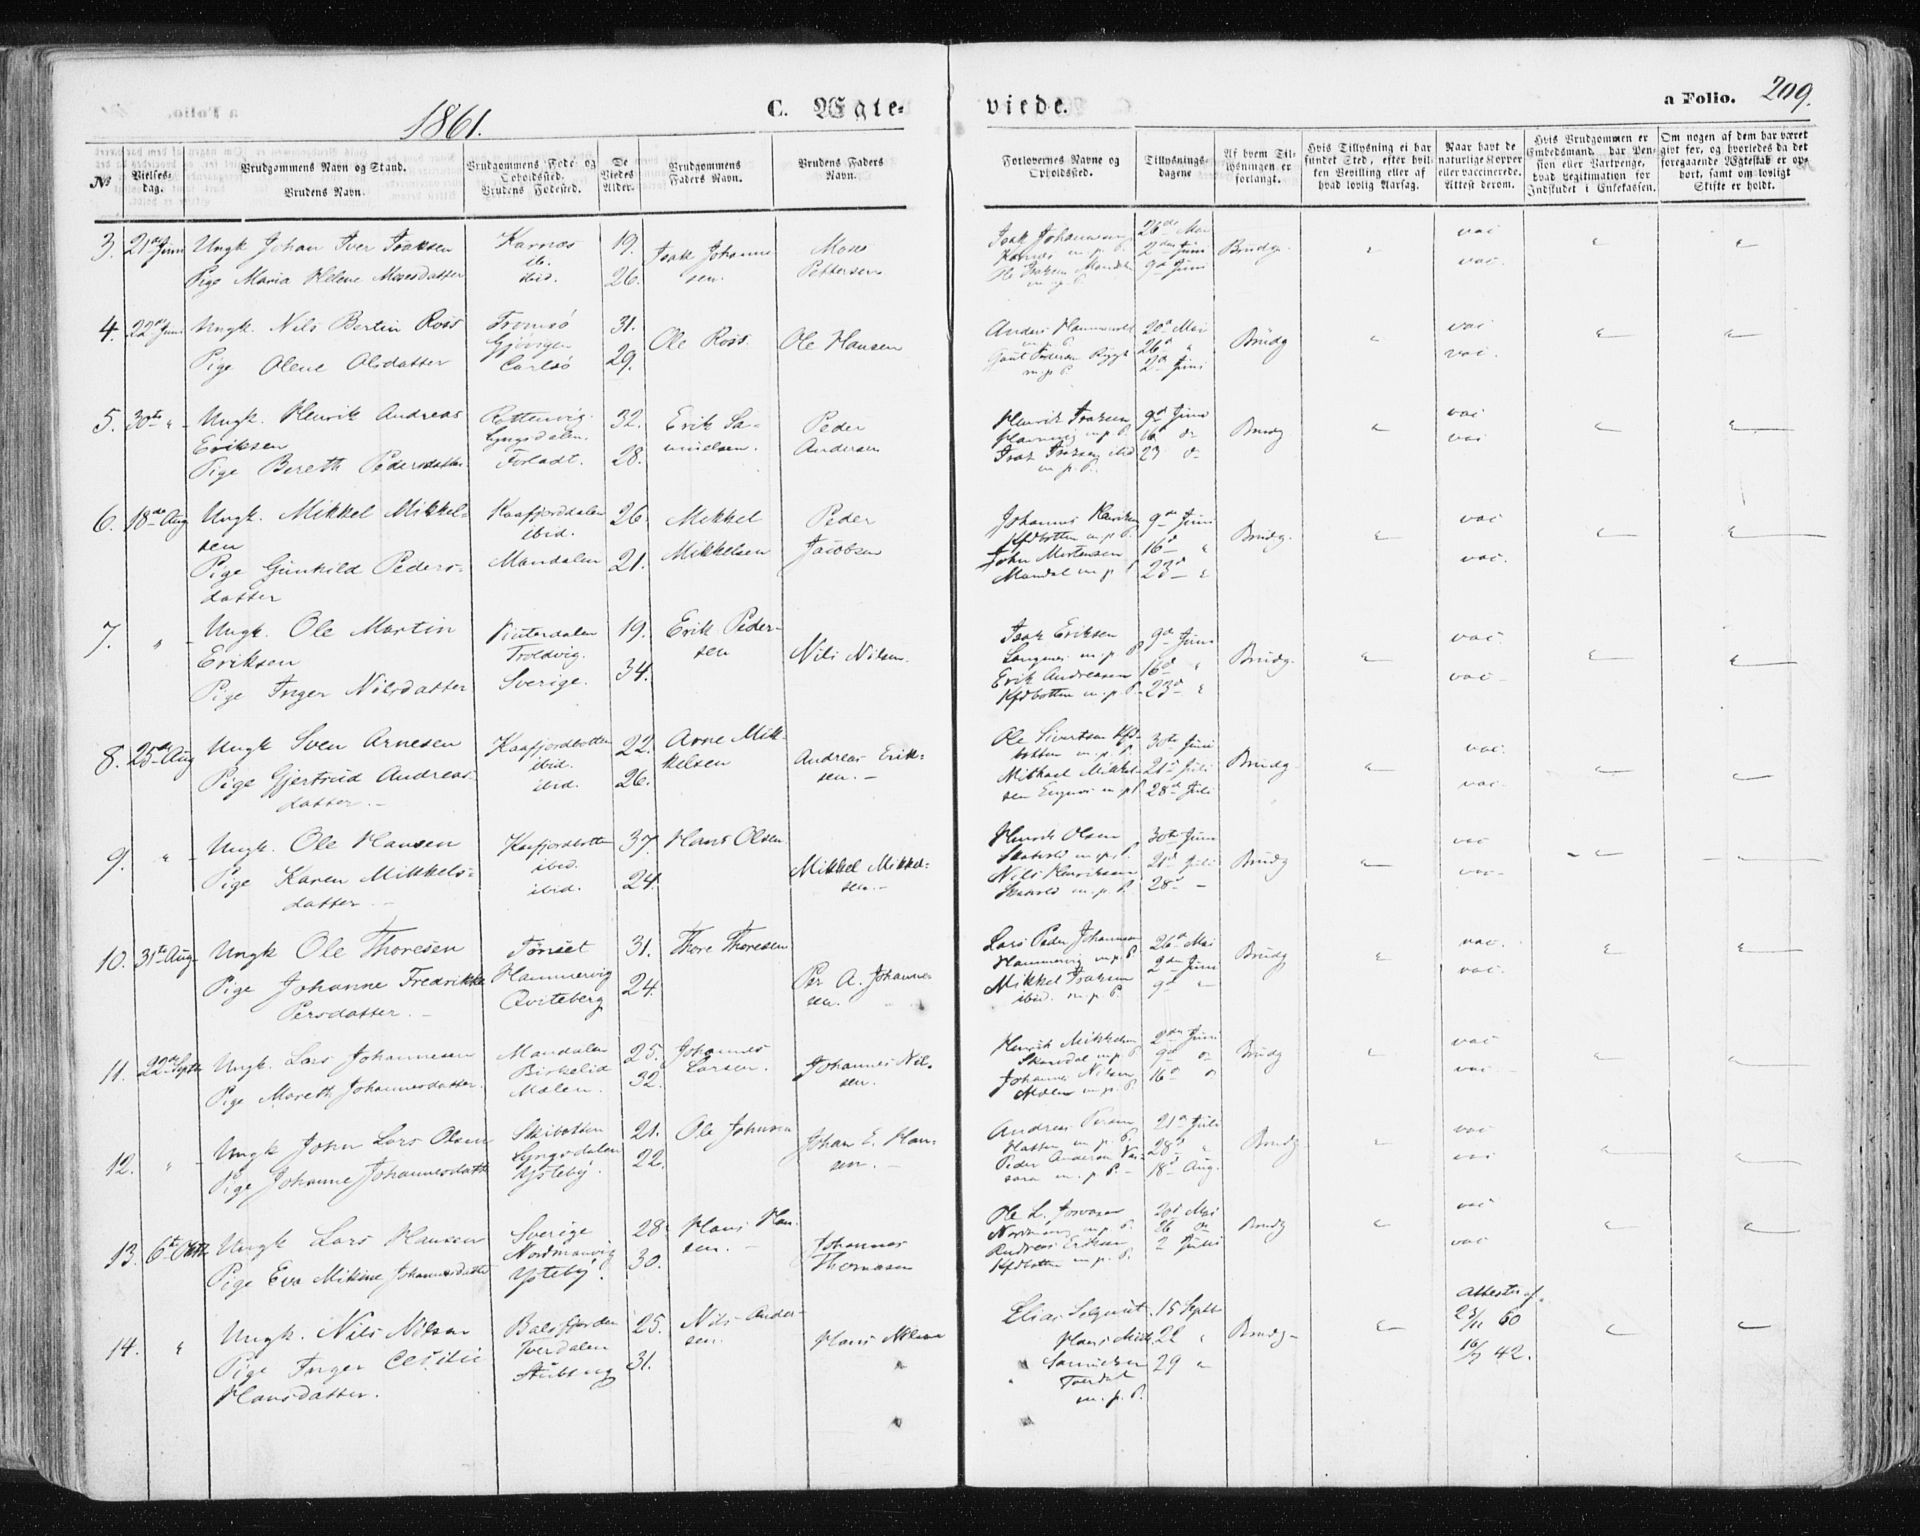 1861.
C. Ægte-
viede.
a Folio. 209.
No
Vielses-
dag.
Brudgommens Navn og Stand.
Brudens Navn.
Brudgommens Føde og
Opholdssted.
Brudens Fødested.
De
Viedes
Alder.
Brudgommens
Faders Navn.
Brudens Faders
Navn.
Forlovernes Navne og
Opholdssted.
Tillysnings-
dagene
Af hvem Til-
lysningen er
forlangt.
Hvis Tillysning ei har
fundet Sted, efter hvil-
ken Bevilling eller af
hvad lovlig Aarsag.
Naar havt de
naturlige Kopper
eller vaccinerede.
Attest derom.
Hvis Brudgommen er
Embedsmand, har Pen-
sion eller Vartpenge,
hvad Legitimation for
Indskudet i Enkekassen.
Om nogen af dem har været
gift før, og hvorledes da det
foregaaende Ægteskab er op-
hørt, samt om lovligt
Skifte er holdt.
3. 21de Juni Ungk Johan Iver Isaksen Karnæs 19. Isak Johanne- Moses
ib.
sen. Pettersen
Pige Maria Helene Mosesdatter ibid. 26.
Isak Johannesen 26de Mai
Karnæs m. p. P. 2den Juni Brudg. vac
9de Juni vac.
4. 22de Juni Ungk. Nils Bertin Ross Tromsö 31. Ole Ross. Ole Hansen
Gjövigen
Pige Olene Olsdatter Carlsö 29.
20de Mai Brudg vac
26de "
m. p. P. 2de Juni vac.
5. 30te " Ungk. Henrik Andreas Rottenvig. 32. Erik Sa- Peder
Eriksen Lyngsdalen. muelsen. Andersen
Pige Bereth Pedersdatter 28.
Henrik Isaksen 9de Juni vac
m. p. P. 16de Brudg. vac
Isak Isaksen ibid 23
m. p. P.
6. 18de Aug Ungk. Mikkel Mikkel- Kaafjorddalen 26. Mikkel Peder
sen ibid. Mikkelsen Jacobsen
Pige Gunhild Peders- Mandalen 21.
datter
Johannes Henriksen 9de Juni vac
Kfdbotten m. p. P. 16d " Brudg.
John Mortensen 23d " vac.
Mandal m. p. P.
7. " Ungk. Ole Martin 19. Erik Peder-
Eriksen Troldvig. sen Nils Nilsen.
Pige Inger Nilsdatter Sverige. 34.
Isak Eriksen 9de Juni vac
Langnes m. p. P. 16d " Brudg.
Erik Andreassen 23d " vac
Kfdbotten m. p. P.
8. 25de Aug Ungk Sven Arnesen Kaafjordbotten 22. Arne Mik- Andreas Erik-
ibid. kelsen sen.
Pige Gjertrud Andreas- ibid. 26.
datter.
Ole Sivertsen Kfd- 30te Juni vac.
botten m. p. P. 21d Juli Brudg
Mikkael Mikkel- 28d Juli vac.
sen m. p. P.
9. " Ungk. Ole Hansen Kaafjordbotten 37. Hans Olsen
ibid. Mikkel Mikkel-
Pige Karen Mikkels- ibid 24. sen.
datter
Henrik Olsen 30te Juni vac
m. p. P. 21d Juli Brudg
Nils Henriksen 28d vac
m. p. P.
10. 31te Aug Ungk Ole Thoresen Tønset 31. Thore Thoresen
Pige Johanne Fredrikke Hammervig 24. Per A. Johannes-
Persdatter. Qviteberg sen.
Lars Peder Johannesen 26de Mai vac.
Hammervig m. p. P. 2den Juni Brudg
Mikkel Isaksen 9de " vac.
ibid. m. p. P.
11. 22de Septbr Ungk. Lars Johannesen Mandalen 25. Johannes Johannes Nil-
Birkelid Larsen. sen.
Pige Mareth Johannesdatter. Mælen. 32.
Henrik Mikkelsen 2den Juni vac
Skardal m. p. P. 9de Brudg
Johannes Nilsen 16de vac
Mælen m. p. P.
12. " Ungk John Lars Olsen Skibotten 21. Ole Johnsen Johan E. Han-
Lyngsdalen sen.
Pige Johanne Johannesdatter Ysteby. 22.
Andreas 21d Juli vac
m. p. P. 28d " Brudg
Peder Andersen 18d Aug. vac
m. p. P.
13. 6te Octbr Ungk Lars Hansen Sverige 28. Hans Han- Johannes
Nordmanvig sen. Thomasen
Pige Eva Mikine Johannesdatter Ysteby. 30.
Ole L. 20d Mai vac
m. p. P. 26 Brudg
Andreas Eriksen 2 Juli vac
Kfdbotten m. p. P.
14. " Ungk. Nils Nilsen Balsfjorden 25. Nils Ander- Hans Nilsen
Tverdalen sen.
Pige Inger Cecilie 31.
Hansdatter.
Elias 15 Septbr Attester af
Hans 22 " Brudg 23/11 60
Samuelsen 29 " 16/7 42.
Tverdal
m. p. P.